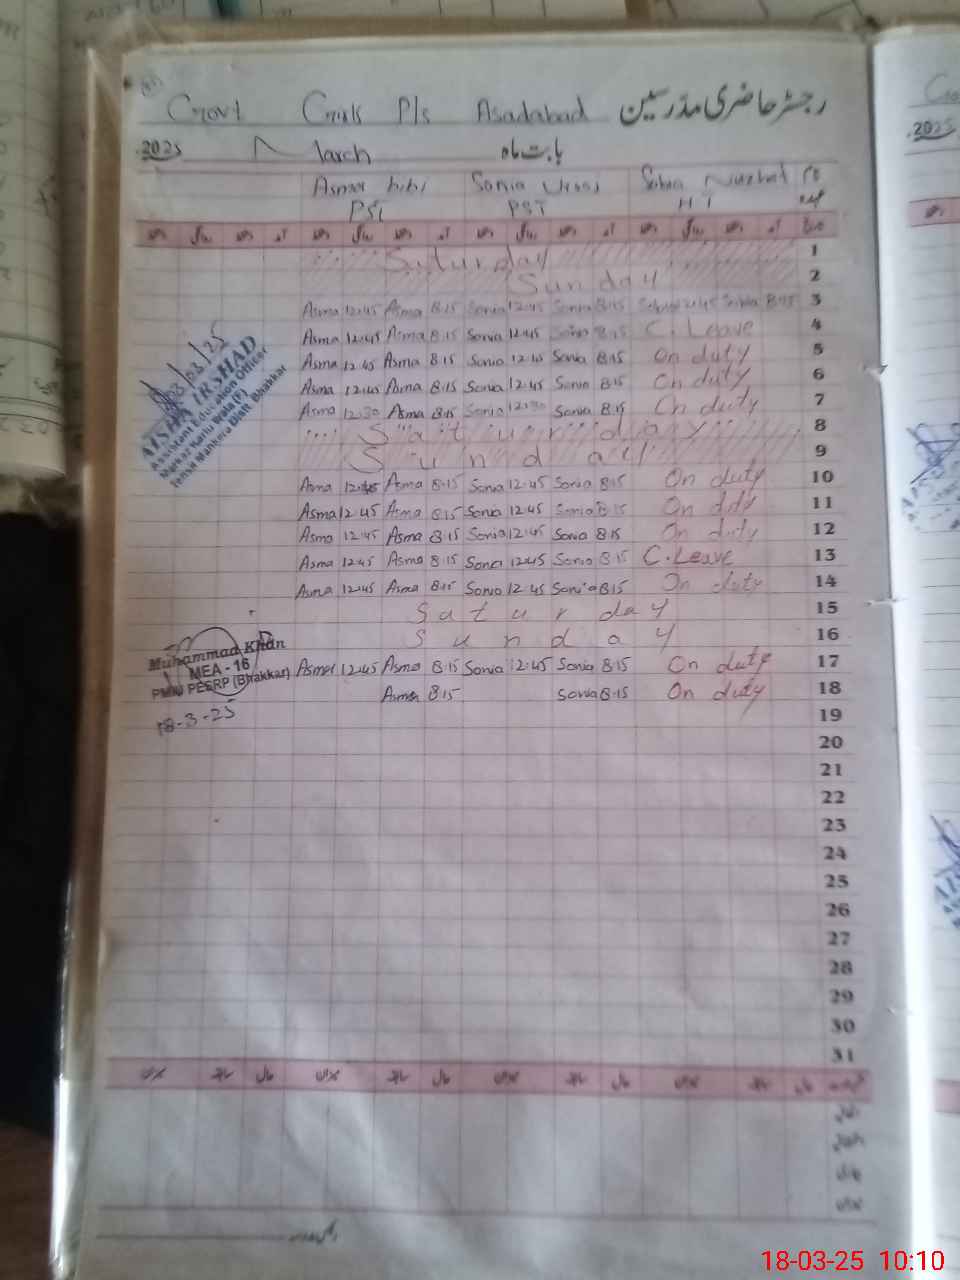 Govt Girls P/s Asadabad رجسٹر حاضری مدرسین
2025 March بابت ماہ
Asma bibi Sonia
PST PST HT
Saturday 1
Sunday 2
Asma 12:45 Asma 8:15 Sonia 12:45 Sonia 8:15 12:45 8:15 3
Asma 12:45 Asma 8:15 Sonia 12:45 Sonia 8:15 C. Leave 4
Asma 12:45 Asma 8:15 Sonia 12:45 Sonia 8:15 On duty 5
Asma 12:45 Asma 8:15 Sonia 12:45 Sonia 8:15 On duty 6
Asma 12:30 Asma 8:15 Sonia 12:30 Sonia 8:15 On duty 7
Saturday 8
Sunday 9
Asma 12:45 Asma 8:15 Sonia 12:45 Sonia 8:15 On duty 10
Asma 12:45 Asma 8:15 Sonia 12:45 Sonia 8:15 On duty 11
Asma 12:45 Asma 8:15 Sonia 12:45 Sonia 8:15 On duty 12
Asma 12:45 Asma 8:15 Sonia 12:45 Sonia 8:15 C. Leave 13
Asma 12:45 Asma 8:15 Sonia 12:45 Sonia 8:15 On duty 14
Saturday 15
Sunday 16
Asma 12:45 Asma 8:15 Sonia 12:45 Sonia 8:15 On duty 17
Asma 8:15 Sonia 8:15 On duty 18
19
20
21
22
23
24
25
26
27
28
29
30
31
03/25
AISHA IRSHAD
Assistant Education Officer
Markaz Karlu Wala (F)
Tehsil Mankera Distt Bhakkar
Muhammad Khan
MEA - 16
PMIU PESRP (Bhakkar)
18-3-25
2025
18-03-25 10:10